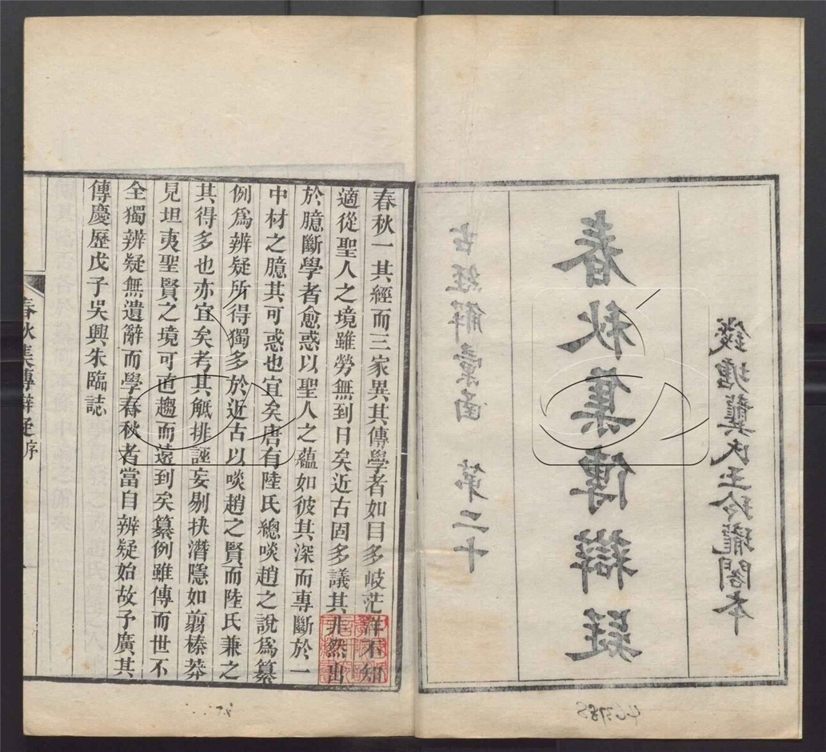 古經解彙函 第二十
春秋集傳辯疑
錢塘龔氏玉玲瓏閣本
春秋一其經而三家異其傳學者如目多岐茫洋不知
適從聖人之境雖勞無到日矣近古固多議其非然出
於臆斷學者愈惑以聖人之蘊如彼其深而專斷於一
中材之臆其可惑也宜矣唐有陸氏總啖趙之說爲纂
例爲辨疑所得獨多於近古以啖趙之賢而陸氏兼之
其得多也亦宜矣考其觝排誣妄剔抉潛隱如翦榛莽
見坦夷聖賢之境可直趨而遠到矣纂例雖傳而世不
全獨辨疑無遺辭而學春秋者當自辨疑始故予廣其
傳慶歷戊子吳興朱臨誌
春秋集傳辯疑序